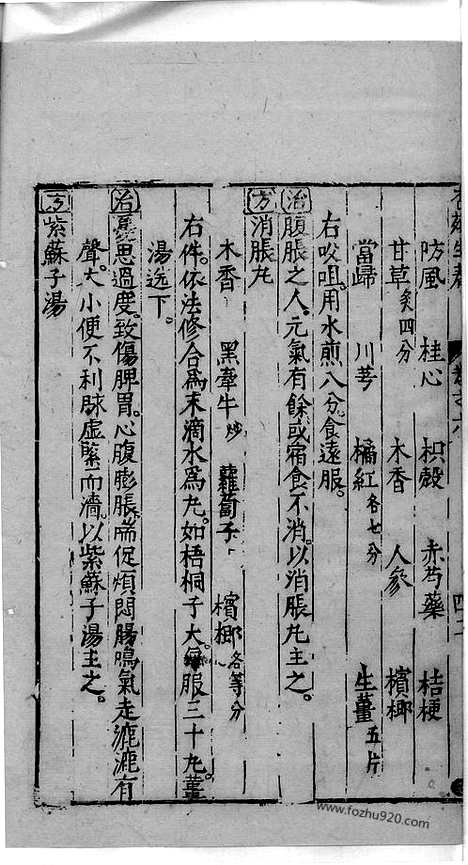 防風 桂心 枳殼 赤芍藥 桔梗
甘草炙四分 木香 人參 檳榔
當歸 川芎 橘紅各七分 生薑五片
右㕮咀。用水煎八分。食遠服。
治腹脹之人。元氣有餘。或宿食不消。以消脹丸主之。
方消脹丸
木香 黑牽牛炒 蘿蔔子 檳榔各等分
右件。依法修合爲末。滴水爲丸。如梧桐子大。每服三十丸。薑
湯送下。
治憂思過度。致傷脾胃。心腹膨脹。喘促煩悶。腸鳴氣走。漉漉有
聲。大小便不利。脉虛緊而濇。以紫蘇子湯主之。
方紫蘇子湯
www.fozhu920.com